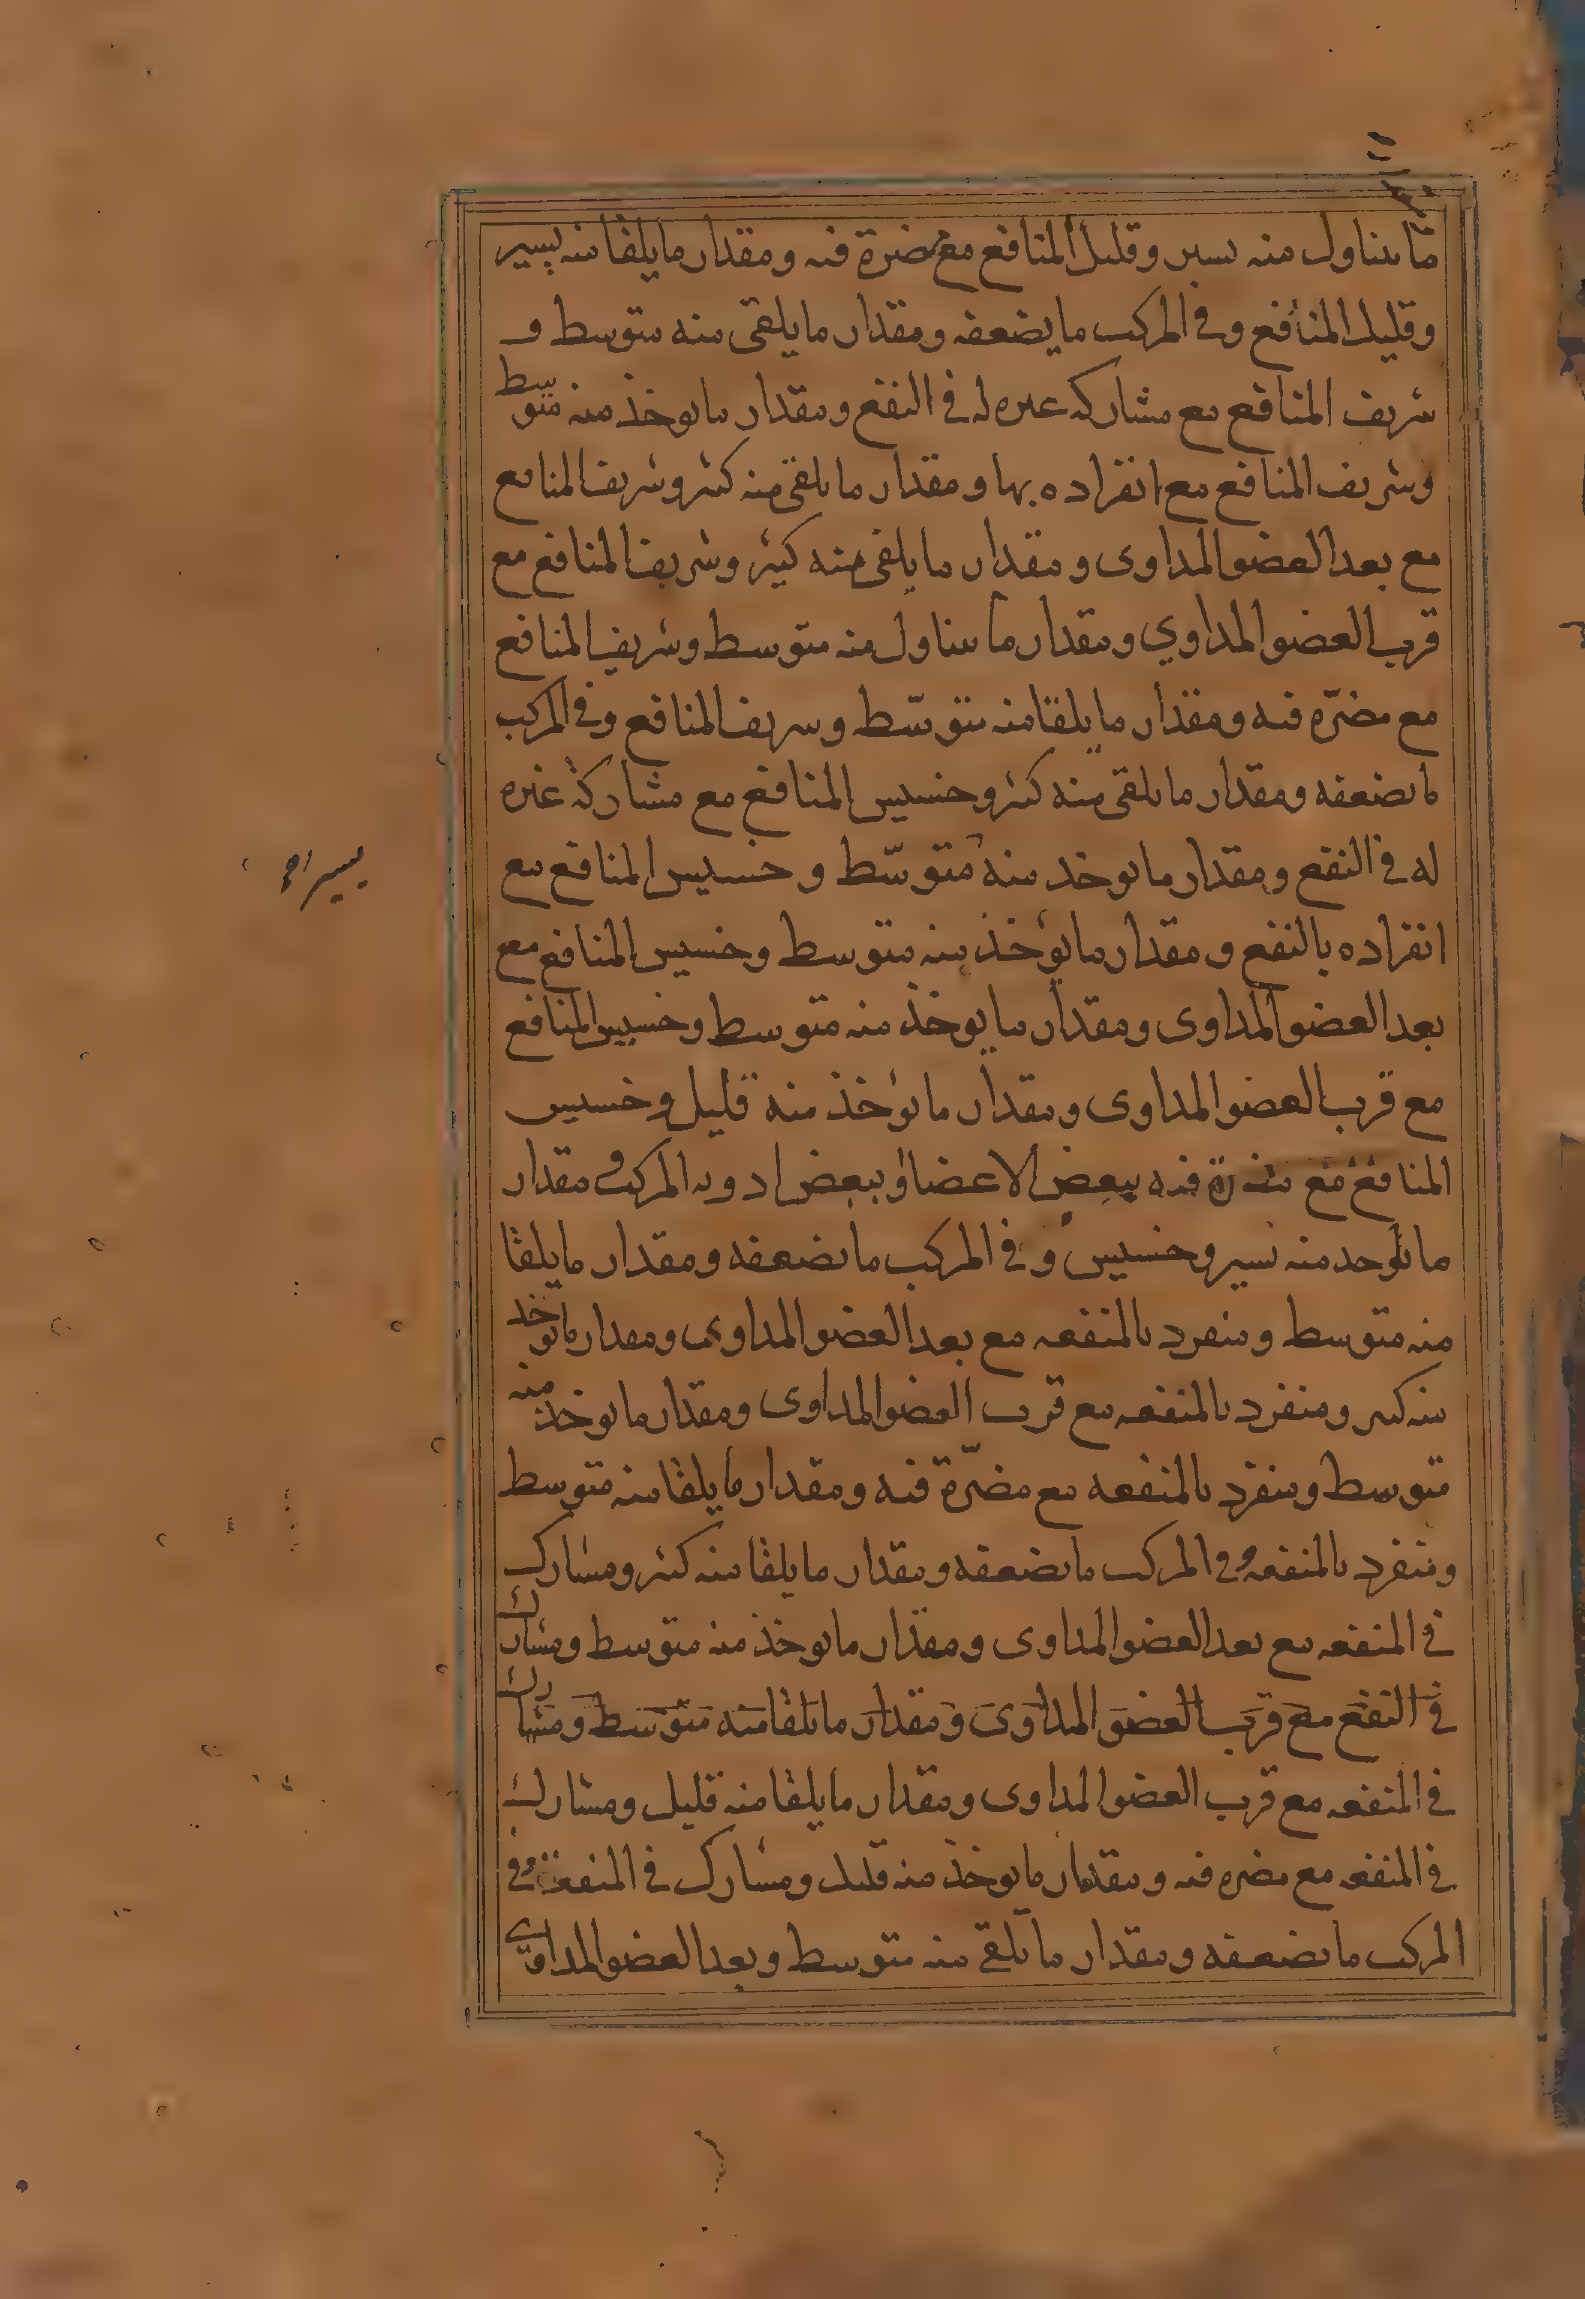 ما يتناول منه يسير وقليل المنافع مع مضرة فيه ومقدار ما يلقا منه يسير
وقليل المنافع وفي المركب ما يضعفه ومقدار ما يلقى منه متوسط و
شريف المنافع مع مشاركة غيره له في النفع ومقدار ما يوخذ منه متوسط
وشريف المنافع مع انفراده بها ومقدار ما يلقى منه كثير وشريف المنافع
مع بعد العضو المداوى ومقدار ما يلقى منه كثير وشريف المنافع مع
قرب العضو المداوي ومقدار ما يتناول منه متوسط وشريف المنافع
مع مضرّه فيه ومقدار ما يلقا منه متوسّط وشريف المنافع وفي المركب
ما يضعفه ومقدار ما يلقى منه كثير وخسيس المنافع مع مشاركة غيره
له في النفع ومقدار ما يوخذ منه متوسّط وخسيس المنافع مع
انفراده بالنفع ومقدار ما يؤخذ منه متوسط وخسيس المنافع مع
بعد العضو المداوى ومقدار ما يوخذ منه متوسط وخسيس المنافع
مع قرب العضو المداوى ومقدار ما يؤخذ منه قليل وخسيس
المنافع مع مضرة فيه ببعض الاعضا او ببعض ادويه المركب ومقدار
ما يؤخذ منه يسير وخسيس وفي المركب ما يضعفه ومقدار ما يلقا
منه متوسط ومنفرد بالمنفعه مع بعد العضو المداوى ومقدار ما يوخذ
منه كثير ومنفرد بالمنفعه مع قرب العضو المداوى ومقدار ما يوخذ منه
متوسط ومنفرد بالمنفعه مع مضرّة فيه ومقدار ما يلقا منه متوسط
ومنفرد بالمنفعه وفي المركب ما يضعفه ومقدار ما يلقا منه كثير ومشارك
في المنفعه مع بعد العضو المداوى ومقدار ما يوخذ منه متوسط ومشارك
في النفع مع قرب العضو المداوى ومقدار ما يلقا منه متوسط ومشارك
في المنفعه مع قرب العضو المداوى ومقدار ما يلقا منه قليل ومشارك
في المنفعه مع مضره فيه ومقدار ما يوخذ منه قليل ومشارك في المنفعة وفي
المركب ما يضعفه ومقدار ما يلقى منه متوسط وبعد العضو المداوي